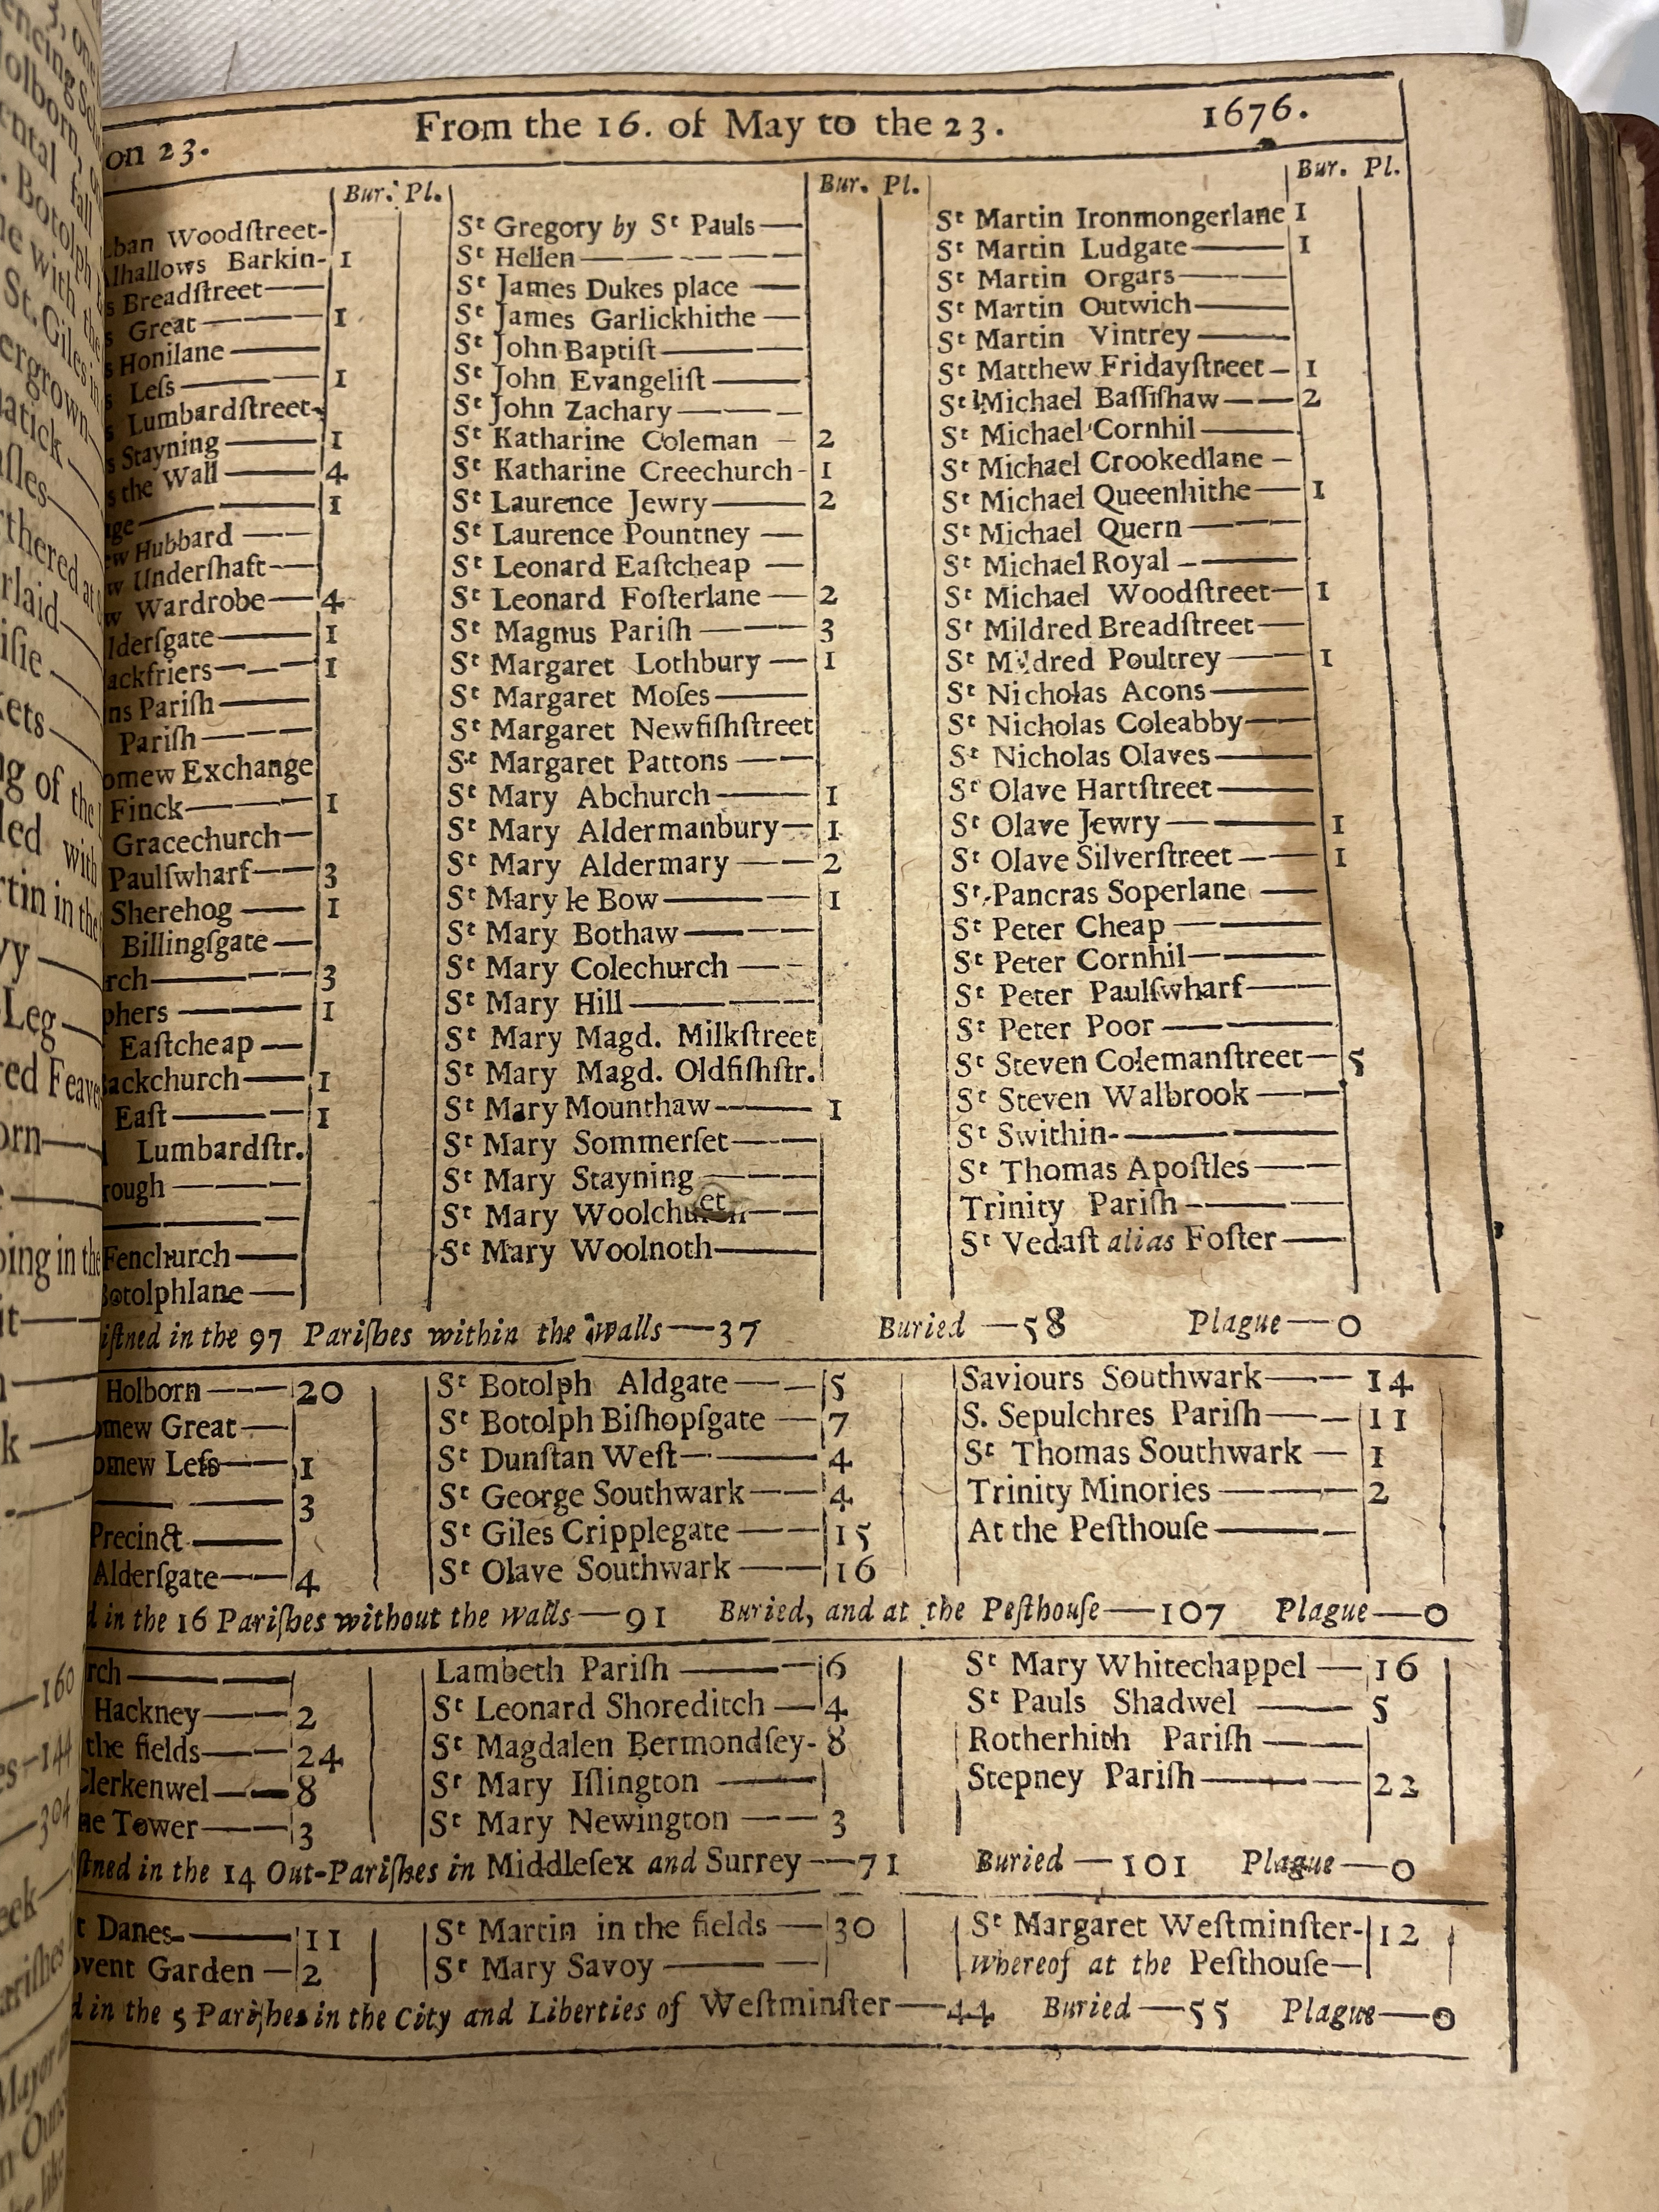 on 23. From the 16. of May to the 23. 1676.
Bur. Pl.
Woodſtreet-
Barkin- 1
Breadſtreet——
Great ——— 1
Honilane ——
Leſs ——— 1
Lumbardſtreet
Stayning —— 1
the Wall —— 4
——— 1
Hubbard ——
Underſhaft——
Wardrobe—— 4
—— 1
——— 1
Pariſh ——
Pariſh ———
Exchange
Finck——— 1
Gracechurch—
Paulſwharf—— 3
Sherehog —— 1
Billingſgate —
——— 3
——— 1
Eaſtcheap —
—— 1
Eaſt ——— 1
Lumbardſtr.
———
———
Fenchurch ——
Botolphlane —
Bur. Pl.
St Gregory by St Pauls —
St Hellen —————
St James Dukes place ——
St James Garlickhithe —
St John Baptiſt———
St John Evangeliſt ——
St John Zachary———
St Katharine Coleman — 2
St Katharine Creechurch - 1
St Laurence Jewry—— 2
St Laurence Pountney —
St Leonard Eaſtcheap —
St Leonard Foſterlane — 2
St Magnus Pariſh ——— 3
St Margaret Lothbury — 1
St Margaret Moſes——
St Margaret Newfiſhſtreet
St Margaret Pattons ——
St Mary Abchurch —— 1
St Mary Aldermanbury— 1
St Mary Aldermary —— 2
St Mary le Bow ——— 1
St Mary Bothaw———
St Mary Colechurch ——
St Mary Hill ————
St Mary Magd. Milkſtreet
St Mary Magd. Oldfiſhſtr.
St Mary Mounthaw—— 1
St Mary Sommerſet——
St Mary Stayning ———
St Mary Woolchurch——
St Mary Woolnoth——
Bur. Pl.
St Martin Ironmongerlane 1
St Martin Ludgate—— 1
St Martin Orgars———
St Martin Outwich——
St Martin Vintrey ——
St Matthew Fridayſtreet — 1
St Michael Baſſiſhaw—— 2
St Michael Cornhil ——
St Michael Crookedlane —
St Michael Queenhithe— 1
St Michael Quern ———
St Michael Royal ———
St Michael Woodſtreet— 1
St Mildred Breadſtreet——
St Mildred Poultrey —— 1
St Nicholas Acons——
St Nicholas Coleabby——
St Nicholas Olaves——
St Olave Hartſtreet——
St Olave Jewry ——— 1
St Olave Silverſtreet —— 1
St Pancras Soperlane ——
St Peter Cheap ———
St Peter Cornhil———
St Peter Paulſwharf——
St Peter Poor ———
St Steven Colemanſtreet— 5
St Steven Walbrook ——
St Swithin-————
St Thomas Apoſtles——
Trinity Pariſh ———
St Vedaſt alias Foſter——
in the 97 Pariſhes within the walls—37 Buried —58 Plague—0
Holborn ——— 20
Great —
Leſs—— 1
——— 3
Precinct ——
Alderſgate—— 4
St Botolph Aldgate —— 5
St Botolph Biſhopſgate — 7
St Dunſtan Weſt——— 4
St George Southwark —— 4
St Giles Cripplegate —— 15
St Olave Southwark —— 16
Saviours Southwark—— 14
S. Sepulchres Pariſh—— 11
St Thomas Southwark — 1
Trinity Minories ——— 2
At the Peſthouſe———
in the 16 Pariſhes without the walls—91 Buried, and at the Peſthouſe—107 Plague—0
———
Hackney—— 2
the fields—— 24
Clerkenwel—— 8
Tower—— 3
Lambeth Pariſh ——— 6
St Leonard Shoreditch — 4
St Magdalen Bermondſey- 8
St Mary Iſlington ——
St Mary Newington —— 3
St Mary Whitechappel — 16
St Pauls Shadwel —— 5
Rotherhith Pariſh ——
Stepney Pariſh——— 22
in the 14 Out-Pariſhes in Middleſex and Surrey—71 Buried—101 Plague—0
Danes——— 11
Garden — 2
St Martin in the fields — 30
St Mary Savoy ———
St Margaret Weſtminſter- 12
whereof at the Peſthouſe—
in the 5 Pariſhes in the City and Liberties of Weſtminſter—44 Buried—55 Plague—0